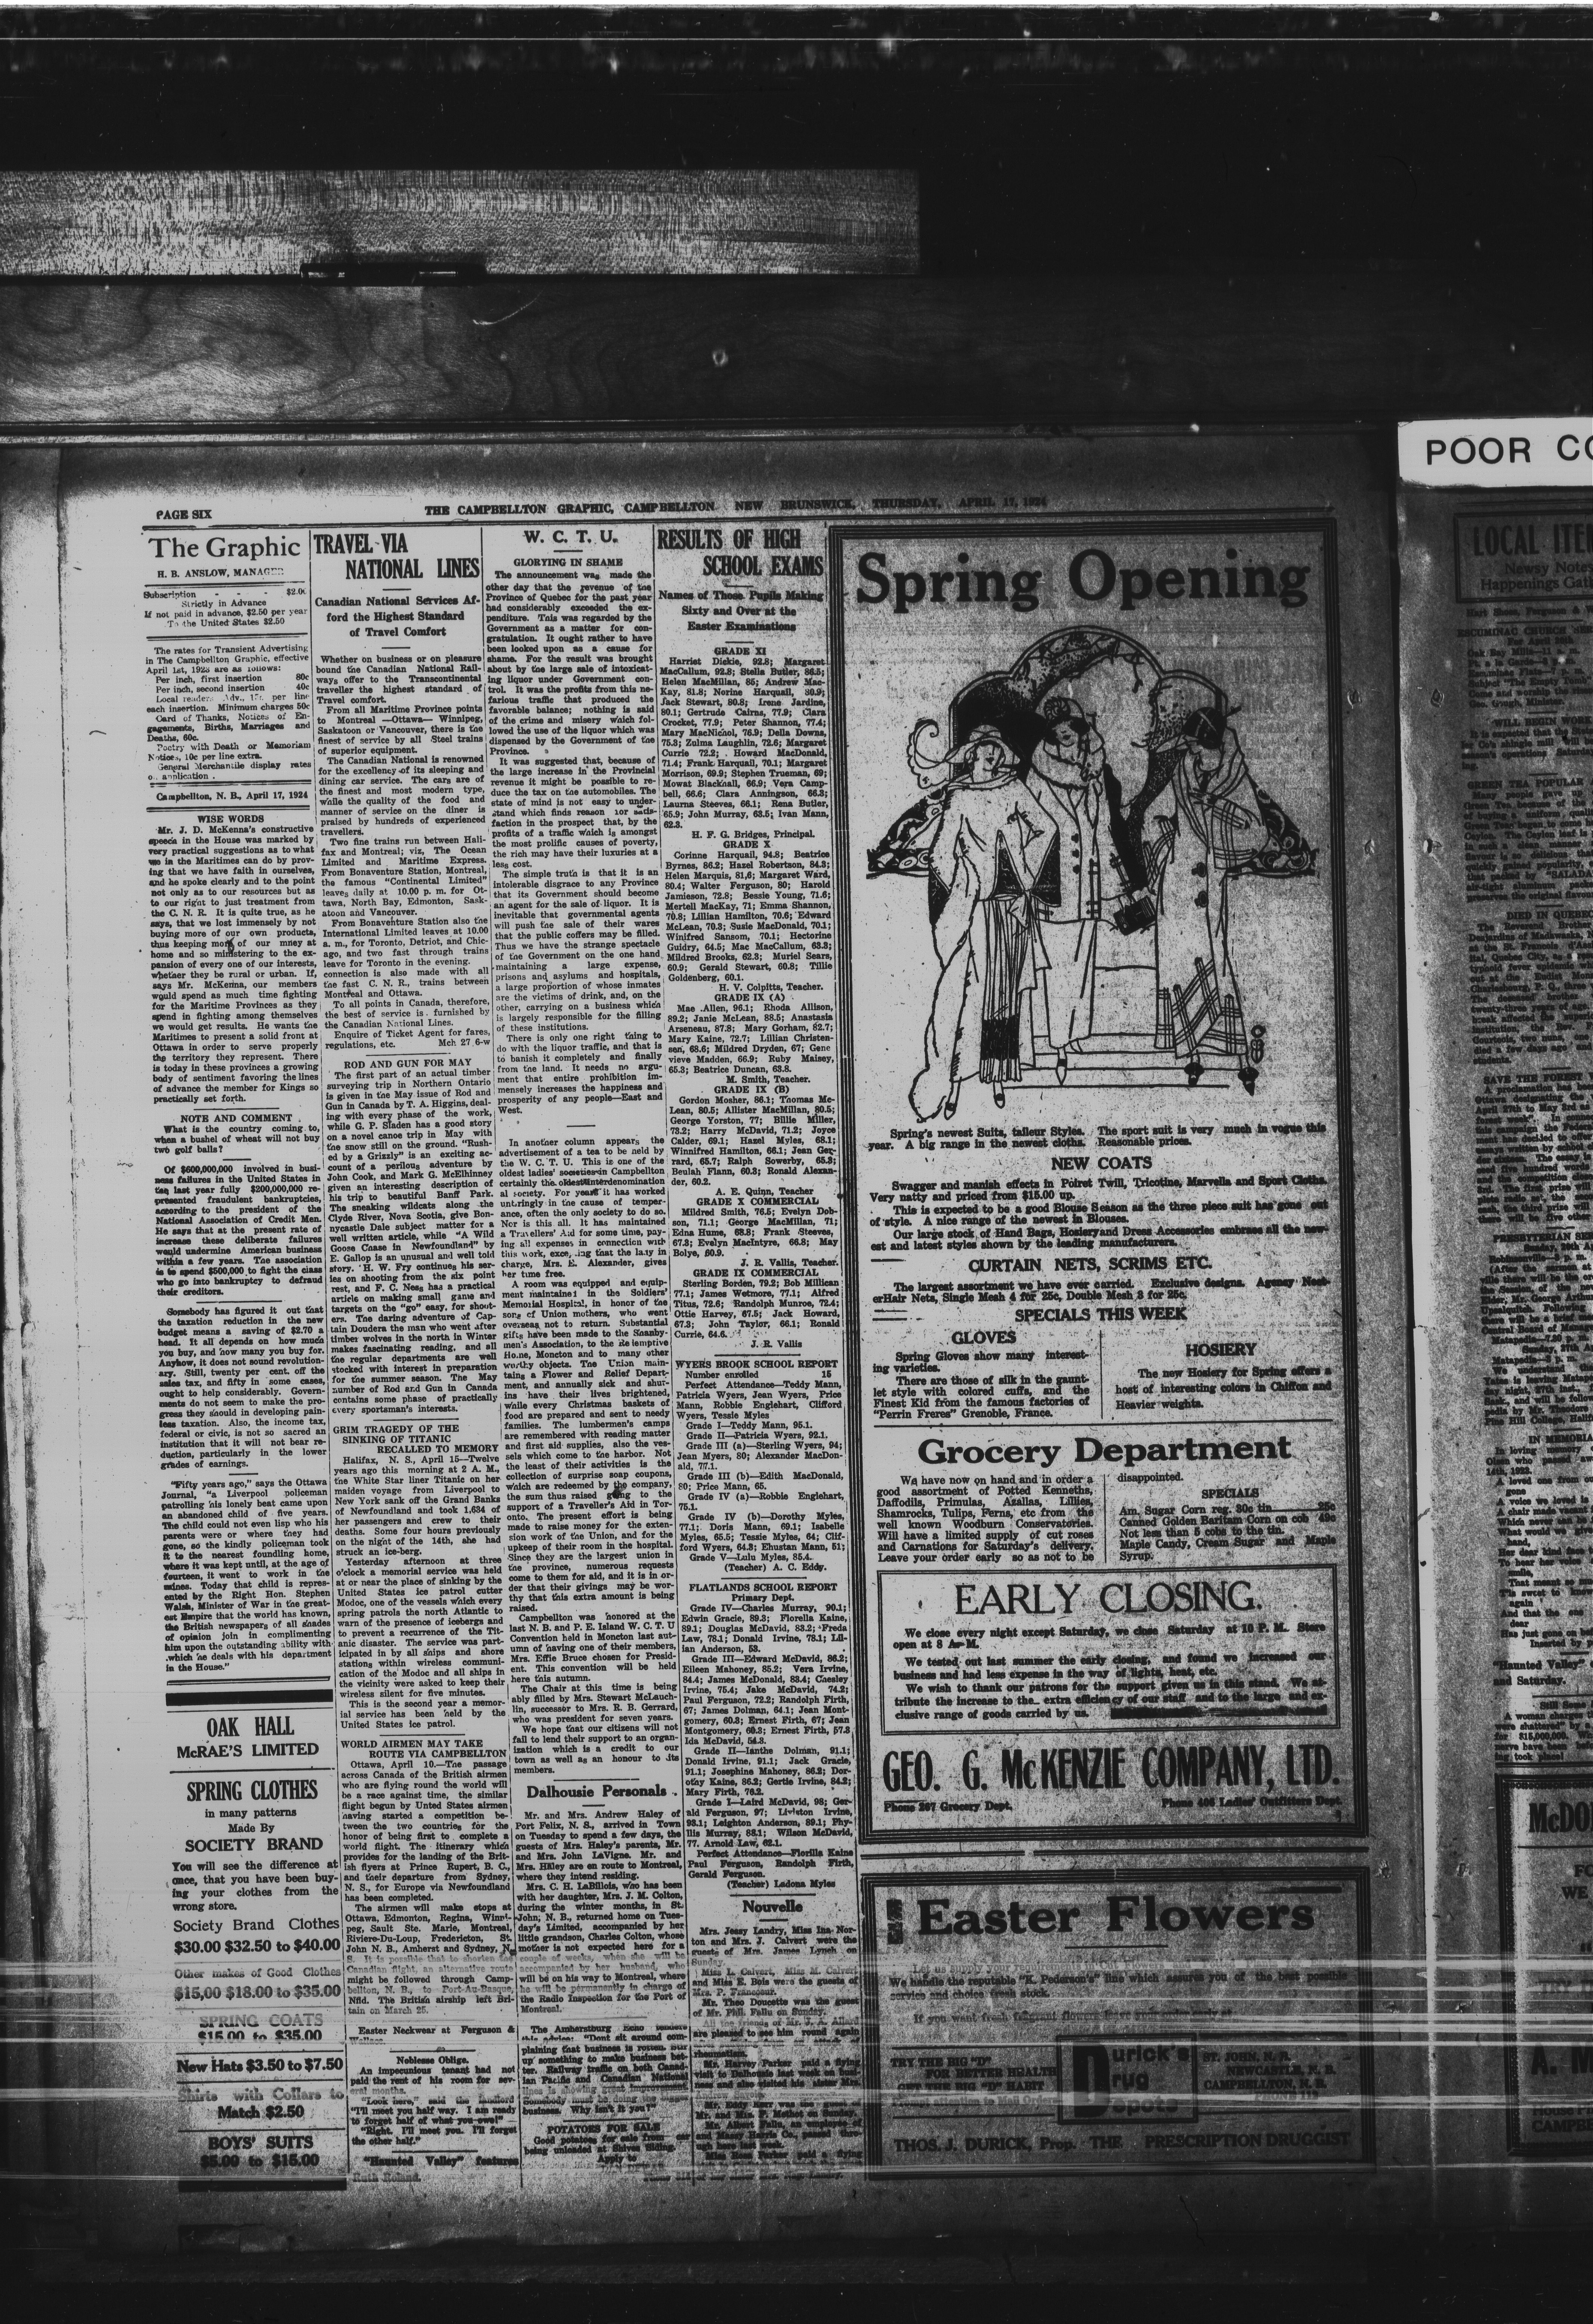 POOR CO
PAGE SIX
THE CAMPBELLTON GRAPHIC, CAMPBELLTON NEW BRUNSWICK, THURSDAY, APRIL 17, 1924
The Graphic
H. B. ANSLOW, MANAGER
Subscription - - - $2.00
Strictly in Advance
If not paid in advance, $2.50 per year
To the United States $2.50
The rates for Transient Advertising
in The Campbellton Graphic, effective
April 1st, 1923 are as follows:
Per inch, first insertion 80c
Per inch, second insertion 40c
Local readers Adv., 15c. per line
each insertion. Minimum charges 50c
Card of Thanks, Notices of En-
gagements, Births, Marriages and
Deaths, 60c.
Poetry with Death or Memoriam
Notices, 10c per line extra.
General Merchantile display rates
on application.
Campbellton, N. B., April 17, 1924
WISE WORDS
Mr. J. D. McKenna's constructive
speech in the House was marked by
very practical suggestions as to what
we in the Maritimes can do by prov-
ing that we have faith in ourselves,
and he spoke clearly and to the point
not only as to our resources but as
to our right to just treatment from
the C. N. R. It is quite true, as he
says, that we lost immensely by not
buying more of our own products,
thus keeping more of our mney at
home and so ministering to the ex-
pansion of every one of our interests,
whether they be rural or urban. If,
says Mr. McKenna, our members
would spend as much time fighting
for the Maritime Provinces as they
spend in fighting among themselves
we would get results. He wants the
Maritimes to present a solid front at
Ottawa in order to serve properly
the territory they represent. There
is today in these provinces a growing
body of sentiment favoring the lines
of advance the member for Kings so
practically set forth.
NOTE AND COMMENT
What is the country coming to,
when a bushel of wheat will not buy
two golf balls?
Of $600,000,000 involved in busi-
ness failures in the United States in
the last year fully $200,000,000 re-
presented fraudent bankruptcies,
according to the president of the
National Association of Credit Men.
He says that at the present rate of
increase these deliberate failures
would undermine American business
within a few years. The association
is to spend $500,000 to fight the class
who go into bankruptcy to defraud
their creditors.
Somebody has figured it out that
the taxation reduction in the new
budget means a saving of $2.70 a
head. It all depends on how much
you buy, and how many you buy for.
Anyhow, it does not sound revolution-
ary. Still, twenty per cent. off the
sales tax, and fifty in some cases,
ought to help considerably. Govern-
ments do not seem to make the pro-
gress they should in developing pain-
less taxation. Also, the income tax,
federal or civic, is not so sacred an
institution that it will not bear re-
duction, particularly in the lower
grades of earnings.
"Fifty years ago," says the Ottawa
Journal, "a Liverpool policeman
patrolling his lonely beat came upon
an abandoned child of five years.
The child could not even lisp who his
parents were or where they had
gone, so the kindly policeman took
it to the nearest foundling home,
where it was kept until, at the age of
fourteen, it went to work in the
mines. Today that child is repres-
ented by the Right Hon. Stephen
Walsh, Minister of War in the great-
est Empire that the world has known,
the British newspapers of all shades
of opinion join in complimenting
him upon the outstanding ability with
which he deals with his department
in the House."
OAK HALL
McRAE'S LIMITED
SPRING CLOTHES
in many patterns
Made By
SOCIETY BRAND
You will see the difference at
once, that you have been buy-
ing your clothes from the
wrong store.
Society Brand Clothes
$30.00 $32.50 to $40.00
Other makes of Good Clothes
$15,00 $18.00 to $35.00
SPRING COATS
$15.00 to $35.00
New Hats $3.50 to $7.50
Shirts with Collars to
Match $2.50
BOYS' SUITS
$5.00 to $15.00
TRAVEL VIA
NATIONAL LINES
Canadian National Services Af-
ford the Highest Standard
of Travel Comfort
Whether on business or on pleasure
bound the Canadian National Rail-
ways offer to the Transcontinental
traveller the highest standard of
Travel comfort.
From all Maritime Province points
to Montreal —Ottawa— Winnipeg,
Saskatoon or Vancouver, there is the
finest of service by all Steel trains
of superior equipment.
The Canadian National is renowned
for the excellency of its sleeping and
dining car service. The cars are of
the finest and most modern type,
while the quality of the food and
manner of service on the diner is
praised by hundreds of experienced
travellers.
Two fine trains run between Hali-
fax and Montreal; viz, The Ocean
Limited and Maritime Express.
From Bonaventure Station, Montreal,
the famous "Continental Limited"
leaves daily at 10.00 p. m. for Ot-
tawa, North Bay, Edmonton, Sask-
atoon and Vancouver.
From Bonaventure Station also the
International Limited leaves at 10.00
a. m., for Toronto, Detriot, and Chic-
ago, and two fast through trains
leave for Toronto in the evening.
connection is also made with all
the fast C. N. R., trains between
Montreal and Ottawa.
To all points in Canada, therefore,
the best of service is furnished by
the Canadian National Lines.
Enquire of Ticket Agent for fares,
regulations, etc. Mch 27 6-w
ROD AND GUN FOR MAY
The first part of an actual timber
surveying trip in Northern Ontario
is given in the May issue of Rod and
Gun in Canada by T. A. Higgins, deal-
ing with every phase of the work,
while G. P. Sladen has a good story
on a novel canoe trip in May with
the snow still on the ground. "Rush-
ed by a Grizzly" is an exciting ac-
count of a perilous adventure by
John Cook, and Mark G. McElhinney
given an interesting description of
his trip to beautiful Banff Park.
The sneaking wildcats along the
Clyde River, Nova Scotia, give Bon-
nycastle Dale subject matter for a
well written article, while "A Wild
Goose Chase in Newfoundland" by
E. Gallop is an unusual and well told
story. H. W. Fry continues his ser-
ies on shooting from the six point
rest, and F. C. Ness has a practical
article on making small game and
targets on the "go" easy, for shout-
ers. The daring adventure of Cap-
tain Doudera the man who went after
timber wolves in the north in Winter
makes fascinating reading, and all
the regular departments are well
stocked with interest in preparation
for the summer season. The May
number of Rod and Gun in Canada
contains some phase of practically
every sportsman's interests.
GRIM TRAGEDY OF THE
SINKING OF TITANIC
RECALLED TO MEMORY
Halifax, N. S., April 15—Twelve
years ago this morning at 2 A. M.,
the White Star liner Titanic on her
maiden voyage from Liverpool to
New York sank off the Grand Banks
of Newfoundland and took 1,634 of
her passengers and crew to their
deaths. Some four hours previously
on the night of the 14th, she had
struck an ice-berg.
Yesterday afternoon at three
o'clock a memorial service was held
at or near the place of sinking by the
United States ice patrol cutter
Modoc, one of the vessels which every
spring patrols the north Atlantic to
warn of the presence of icebergs and
to prevent a recurrence of the Tit-
anic disaster. The service was part-
icipated in by all ships and shore
stations within wireless communi-
cation of the Modoc and all ships in
the vicinity were asked to keep their
wireless silent for five minutes.
This is the second year a memor-
ial service has been held by the
United States ice patrol.
WORLD AIRMEN MAY TAKE
ROUTE VIA CAMPBELLTON
Ottawa, April 10.—The passage
across Canada of the British airmen
who are flying round the world will
be a race against time, the similar
flight begun by Unted States airmen
having started a competition be-
tween the two countries for the
honor of being first to complete a
world flight. The itinerary which
provides for the landing of the Brit-
ish flyers at Prince Rupert, B. C.,
and their departure from Sydney,
N. S., for Europe via Newfoundland
has been completed.
The airmen will make stops at
Ottawa, Edmonton, Regina, Winni-
peg, Sault Ste. Marie, Montreal,
Riviere-Du-Loup, Fredericton, St.
John N. B., Amherst and Sydney, N.
S. It is possible that to shorten the
Canadian flight, an alternative route
might be followed through Camp-
bellton, N. B., to Port-Au-Basque,
Nfld. The British airship left Bri-
tain on March 25.
Easter Neckwear at Ferguson &
Noblesse Oblige.
An impecunious tenant had not
paid the rent of his room for sev-
eral months.
"Look here," said the landlord
"I'll meet you half way. I am ready
to forget half of what you owe!"
"Right. I'll meet you. I'll forget
the other half."
"Haunted Valley" features
Ruth Roland.
W. C. T. U.
GLORYING IN SHAME
The announcement was made the
other day that the revenue of the
Province of Quebec for the past year
had considerably exceeded the ex-
penditure. This was regarded by the
Government as a matter for con-
gratulation. It ought rather to have
been looked upon as a cause for
shame. For the result was brought
about by the large sale of intoxicat-
ing liquor under Government con-
trol. It was the profits from this ne-
farious traffic that produced the
favorable balance; nothing is said
of the crime and misery which fol-
lowed the use of the liquor which was
dispensed by the Government of the
Province.
It was suggested that, because of
the large increase in the Provincial
revenue it might be possible to re-
duce the tax on the automobiles. The
state of mind is not easy to under-
stand which finds reason for satis-
faction in the prospect that, by the
profits of a traffic which is amongst
the most prolific causes of poverty,
the rich may have their luxuries at a
less cost.
The simple truth is that it is an
intolerable disgrace to any Province
that its Government should become
an agent for the sale of liquor. It is
inevitable that governmental agents
will push the sale of their wares
that the public coffers may be filled.
Thus we have the strange spectacle
of the Government on the one hand
maintaining a large expense,
prisons and asylums and hospitals,
a large proportion of whose inmates
are the victims of drink, and, on the
other, carrying on a business which
is largely responsible for the filling
of these institutions.
There is only one right thing to
do with the liquor traffic, and that is
to banish it completely and finally
from the land. It needs no argu-
ment that entire prohibition im-
mensely increases the happiness and
prosperity of any people—East and
West.
In another column appears the
advertisement of a tea to be held by
the W. C. T. U. This is one of the
oldest ladies' societies in Campbellton
certainly the oldest interdenomination
al society. For years it has worked
untiringly in the cause of temper-
ance, often the only society to do so.
Nor is this all. It has maintained
a Travellers' Aid for some time, pay-
ing all expenses in connection with
this work, excepting that the lady in
charge, Mrs. E. Alexander, gives
her time free.
A room was equipped and equip-
ment maintained in the Soldiers'
Memorial Hospital, in honor of the
sons of Union mothers, who went
overseas not to return. Substantial
gifts have been made to the Shanby-
men's Association, to the Redemptive
Home, Moncton and to many other
worthy objects. The Union main-
tains a Flower and Relief Depart-
ment, and annually sick and shut-
ins have their lives brightened,
while every Christmas baskets of
food are prepared and sent to needy
families. The lumbermen's camps
are remembered with reading matter
and first aid supplies, also the ves-
sels which come to the harbor. Not
the least of their activities is the
collection of surprise soap coupons,
which are redeemed by the company,
the sum thus raised going to the
support of a Traveller's Aid in Tor-
onto. The present effort is being
made to raise money for the exten-
sion work of the Union, and for the
upkeep of their room in the hospital.
Since they are the largest union in
the province, numerous requests
come to them for aid, and it is in or-
der that their givings may be wor-
thy that this extra amount is being
raised.
Campbellton was honored at the
last N. B. and P. E. Island W. C. T. U
Convention held in Moncton last aut-
umn of having one of their members,
Mrs. Effie Bruce chosen for Presid-
ent. This convention will be held
here this autumn.
The Chair at this time is being
ably filled by Mrs. Stewart McLauch-
lin, successor to Mrs. R. B. Gerrard,
who was president for seven years.
We hope that our citizens will not
fail to lend their support to an organ-
ization which is a credit to our
town as well as an honour to its
members.
Dalhousie Personals
Mr. and Mrs. Andrew Haley of
Port Felix, N. S., arrived in Town
on Tuesday to spend a few days, the
guests of Mrs. Haley's parents, Mr.
and Mrs. John LaVigne. Mr. and
Mrs. Haley are en route to Montreal,
where they intend residing.
Mrs. C. H. LaBillois, who has been
with her daughter, Mrs. J. M. Colton,
during the winter months, in St.
John; N. B., returned home on Tues-
day's Limited, accompanied by her
little grandson, Charles Colton, whose
mother is not expected here for a
couple of weeks, when she will be
accompanied by her husband, who
will be on his way to Montreal, where
he will be permanently in charge of
the Radio Inspection for the Port of
Montreal.
The Amherstburg Echo tenders
this advice: "Dont sit around com-
plaining that business is rotten. Stir
up something to make business bet-
ter. Railway traffic on both Canad-
ian Pacific and Canadian National
lines is showing great improvement.
Somebody must be doing the
business. Why isn't it you?"
POTATOES FOR SALE
Good potatoes for sale from car
being unloaded at Shives Siding.
Apply to
RESULTS OF HIGH
SCHOOL EXAMS
Names of Those Pupils Making
Sixty and Over at the
Easter Examinations
GRADE XI
Harriet Dickie, 92.8; Margaret
MacCallum, 92.8; Stella Butler, 86.5;
Helen MacMillan, 85; Andrew Mac-
Kay, 81.8; Norine Harquail, 80.9;
Jack Stewart, 80.8; Irene Jardine,
80.1; Gertrude Cairns, 77.9; Clara
Crocket, 77.9; Peter Shannon, 77.4;
Mary MacNichol, 76.9; Della Downs,
75.3; Zulma Laughlin, 72.6; Margaret
Currie 72.2; Howard MacDonald,
71.4; Frank Harquail, 70.1; Margaret
Morrison, 69.9; Stephen Trueman, 69;
Mowat Blacknall, 66.9; Vera Camp-
bell, 66.6; Clara Anningson, 66.3;
Laurna Steeves, 66.1; Rena Butler,
65.9; John Murray, 63.5; Ivan Mann,
62.3.
H. F. G. Bridges, Principal.
GRADE X
Corinne Harquail, 94.8; Beatrice
Byrnes, 86.2; Hazel Robertson, 84.3;
Helen Marquis, 81,6; Margaret Ward,
80.4; Walter Ferguson, 80; Harold
Jamieson, 72.8; Bessie Young, 71.6;
Mertell MacKay, 71; Emma Shannon,
70.8; Lillian Hamilton, 70.6; Edward
McLean, 70.3; Susie MacDonald, 70.1;
Winifred Sansom, 70.1; Hectorine
Guidry, 64.5; Mac MacCallum, 63.3;
Mildred Brooks, 62.3; Muriel Sears,
60.9; Gerald Stewart, 60.8; Tillie
Goldenberg, 60.1.
H. V. Colpitts, Teacher.
GRADE IX (A)
Mae Allen, 96.1; Rhoda Allison,
89.2; Janie McLean, 88.5; Anastasia
Arseneau, 87.8; Mary Gorham, 82.7;
Mary Kaine, 72.7; Lillian Christen-
sen, 68.6; Mildred Dryden, 67; Gene
vieve Madden, 66.9; Ruby Maisey,
65.3; Beatrice Duncan, 63.8.
M. Smith, Teacher.
GRADE IX (B)
Gordon Mosher, 86.1; Thomas Mc-
Lean, 80.5; Allister MacMillan, 80.5;
George Yorston, 77; Billie Miller,
73.2; Harry McDavid, 71.2; Joyce
Calder, 69.1; Hazel Myles, 68.1;
Winnifred Hamilton, 66.1; Jean Ger-
rard, 65.7; Ralph Sowerby, 65.3;
Beulah Flann, 60.3; Ronald Alexan-
der, 60.2.
A. E. Quinn, Teacher
GRADE X COMMERCIAL
Mildred Smith, 76.5; Evelyn Dob-
son, 71.1; George MacMillan, 71;
Edna Hume, 68.8; Frank Steeves,
67.8; Evelyn MacIntyre, 66.8; May
Bolye, 60.9.
J. R. Vallis, Teacher.
GRADE IX COMMERCIAL
Sterling Borden, 79.2; Bob Millican
77.1; James Wetmore, 77.1; Alfred
Titus, 72.6; Randolph Munroe, 72.4;
Ottie Harvey, 67.5; Jack Howard,
67.3; John Taylor, 66.1; Ronald
Currie, 64.6.
J. R. Vallis
WYERS BROOK SCHOOL REPORT
Number enrolled 15
Perfect Attendance—Teddy Mann,
Patricia Wyers, Jean Wyers, Price
Mann, Robbie Englehart, Clifford
Wyers, Tessie Myles
Grade I—Teddy Mann, 95.1.
Grade II—Patricia Wyers, 92.1.
Grade III (a)—Sterling Wyers, 94;
Jean Myers, 80; Alexander MacDon-
ald, 77.1.
Grade III (b)—Edith MacDonald,
80; Price Mann, 65.
Grade IV (a)—Robbie Englehart,
75.1.
Grade IV (b)—Dorothy Myles,
77.1; Doris Mann, 69.1; Isabelle
Myles, 65.5; Tessie Myles, 64; Clif-
ford Wyers, 64.3; Ehustan Mann, 51;
Grade V—Lulu Myles, 85.4.
(Teacher) A. C. Eddy.
FLATLANDS SCHOOL REPORT
Primary Dept.
Grade IV—Charles Murray, 90.1;
Edwin Gracie, 89.3; Florella Kaine,
89.1; Douglas McDavid, 83.2; Freda
Law, 78.1; Donald Irvine, 78.1; Lil-
ian Anderson, 53.
Grade III—Edward McDavid, 86.2;
Eileen Mahoney, 85.2; Vera Irvine,
84.4; James McDonald, 83.4; Caesley
Irvine, 75.4; Jake McDavid, 74.2;
Paul Ferguson, 72.2; Randolph Firth,
67; James Dolman, 64.1; Jean Mont-
gomery, 60.3; Ernest Firth, 67; Jean
Montgomery, 60.3; Ernest Firth, 57.3
Ida McDavid, 54.3.
Grade II—Ianthe Dolman, 91.1;
Donald Irvine, 91.1; Jack Gracie,
91.1; Josephine Mahoney, 86.2; Dor-
othy Kaine, 86.2; Gertie Irvine, 84.2;
Mary Firth, 76.2.
Grade I—Laird McDavid, 98; Ger-
ald Ferguson, 97; Livieton Irvine,
93.1; Leighton Anderson, 89.1; Phy-
llis Murray, 88.1; Wilson McDavid,
77. Arnold Law, 62.1.
Perfect Attendance—Florilla Kaine
Paul Ferguson, Randolph Firth,
Gerald Ferguson.
(Teacher) Ladona Myles
Nouvelle
Mrs. Jessy Landry, Miss Ina Nor-
ton and Mrs. J. Calvert were the
guests of Mrs. James Lynch on
Sunday.
Miss L. Calvert, Miss M. Calvert
and Miss E. Bois were the guests of
Mrs. P. Francoeur.
Mr. Theo Doucette was the guest
of Mr. Phil. Fallu on Sunday.
All the friends of Mr. J. A. Allard
are pleased to see him round again
rheumatism.
Mr. Harvey Parker paid a flying
visit to Dalhousie last week on busi-
ness and also visited his sister Mrs.
Mr. Eddy Kerr was the guest of
Mr. and Mrs. P. Methot on Sunday.
Mr. Albert Fallu, an employee of
and Massy Harris Co., passed thro-
ugh here last week.
Miss Rose Parker paid a flying
Spring Opening
Spring's newest Suits, tailleur Styles. The sport suit is very much in vogue this
year. A big range in the newest cloths. Reasonable prices.
NEW COATS
Swagger and manish effects in Poiret Twill, Tricotine, Marvella and Sport Cloths.
Very natty and priced from $15.00 up.
This is expected to be a good Blouse Season as the three piece suit has gone out
of style. A nice range of the newest in Blouses.
Our large stock of Hand Bags, Hosiery and Dress Accessories embrases all the new-
est and latest styles shown by the leading manufacturers.
CURTAIN NETS, SCRIMS ETC.
The largest assortment we have ever carried. Exclusive designs. Agency Neet-
erHair Nets, Single Mesh 4 for 25c, Double Mesh 3 for 25c.
SPECIALS THIS WEEK
GLOVES
Spring Gloves show many interest-
ing varieties.
There are those of silk in the gaunt-
let style with colored cuffs, and the
Finest Kid from the famous factories of
"Perrin Freres" Grenoble, France.
HOSIERY
The new Hosiery for Spring offers a
host of interesting colors in Chiffon and
Heavier weights.
Grocery Department
We have now on hand and in order a
good assortment of Potted Kenneths,
Daffodils, Primulas, Azallas, Lillies,
Shamrocks, Tulips, Ferns, etc from the
well known Woodburn Conservatories.
Will have a limited supply of cut roses
and Carnations for Saturday's delivery.
Leave your order early so as not to be
disappointed.
SPECIALS
Am. Sugar Corn reg. 30c tin 25c
Canned Golden Bantam Corn on cob 49c
Not less than 5 cobs to the tin.
Maple Candy, Cream Sugar and Maple
Syrup.
EARLY CLOSING.
We close every night except Saturday, we close Saturday at 10 P. M. Store
open at 8 A. M.
We tested out last summer the early closing, and found we increased our
business and had less expense in the way of lights, heat, etc.
We wish to thank our patrons for the support given us in this stand. We at-
tribute the increase to the extra efficiency of our staff and to the large and ex-
clusive range of goods carried by us.
GEO. G. McKENZIE COMPANY, LTD.
Phone 267 Grocery Dept. Phone 406 Ladies' Outfitters Dept.
Easter Flowers
Let us supply your requirements
We handle the reputable "K. Pederson's" line which assures you of the best possible
service and choice fresh stock.
If you want fresh fragrant flowers leave your order early at
TRY THE BIG "D"
FOR BETTER HEALTH
GET THE BIG "D" HABIT
Durick's
Drug
ST. JOHN, N. B.
NEWCASTLE, N. B.
CAMPBELLTON, N. B.
THOS. J. DURICK, Prop. THE PRESCRIPTION DRUGGIST
LOCAL ITE
Newsy Notes
Happenings Gat
ESCUMINAC CHURCH SER
WILL BEGIN WORK
GREEN TEA POPULAR
DIED IN QUEBEC
SAVE THE FOREST
PRESBYTERIAN SER
IN MEMORIA
"Haunted Valley"
and Saturday.
McDO
A. M
CAMPB